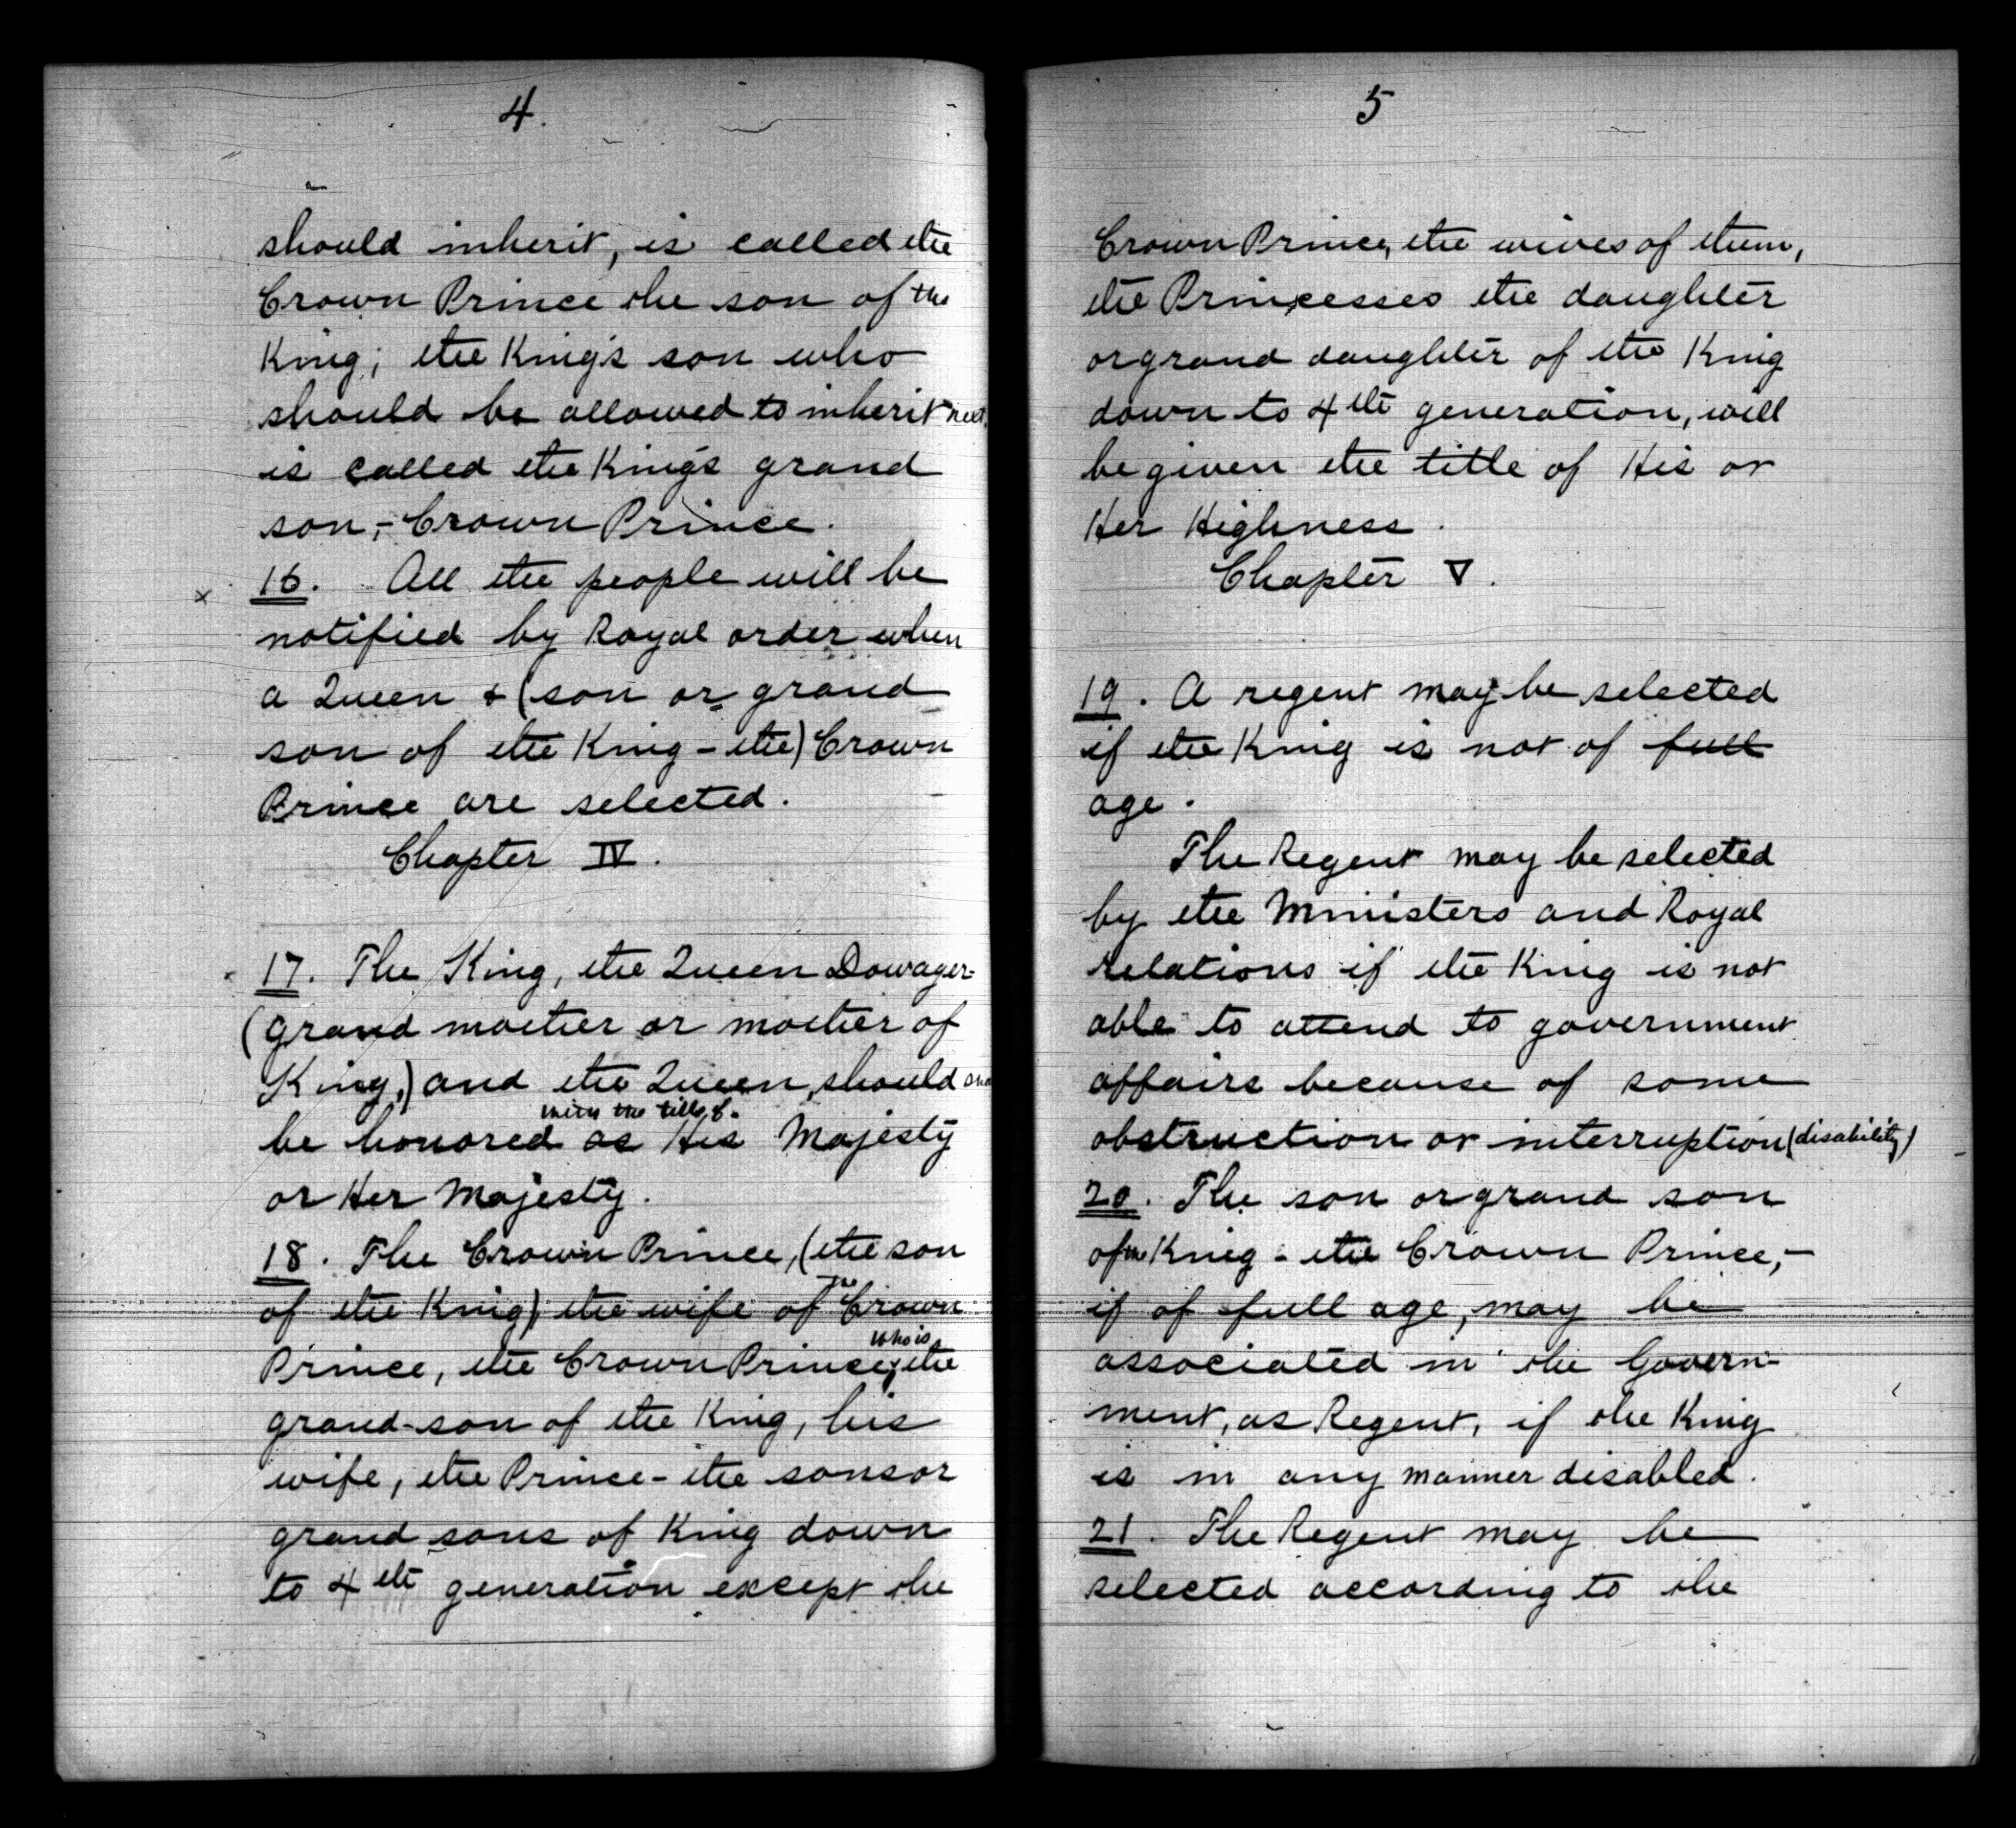 4.
should inherit, is called the
Crown Prince the son of the
King; the King's son who
should be allowed to inherit next,
is called the King's grand
son,- Crown Prince.
x 16. All the people will be
notified by Royal order when
a Queen & (son or grand
son of the King - the) Crown
Prince are selected.
Chapter IV.
17. The King, the Queen Dowager-
(grand mother or mother of
King,) and the Queen, should
with the title of
be honored as His Majesty
or Her Majesty.
18. The Crown Prince, (the son
of the King) the wife of the Crown
who is
Prince, the Crown Prince, the
grand-son of the King, his
wife, the Prince - the sons or
grand sons of King down
to 4th generation except the
5
Crown Prince, the wives of them,
the Princesses the daughter
or grand daughter of the King
down to 4th generation, will
be given the title of His or
Her Highness.
Chapter V.
19. A regent may be selected
if the King is not of full
age.
The Regent may be selected
by the Ministers and Royal
relations if the King is not
able to attend to government
affairs because of some
obstruction or interruption (disability)
20. The son or grand son
of the King - the Crown Prince,-
if of full age, may be
associated in the Govern-
ment, as Regent, if the King
is in any manner disabled.
21. The Regent may be
selected according to the